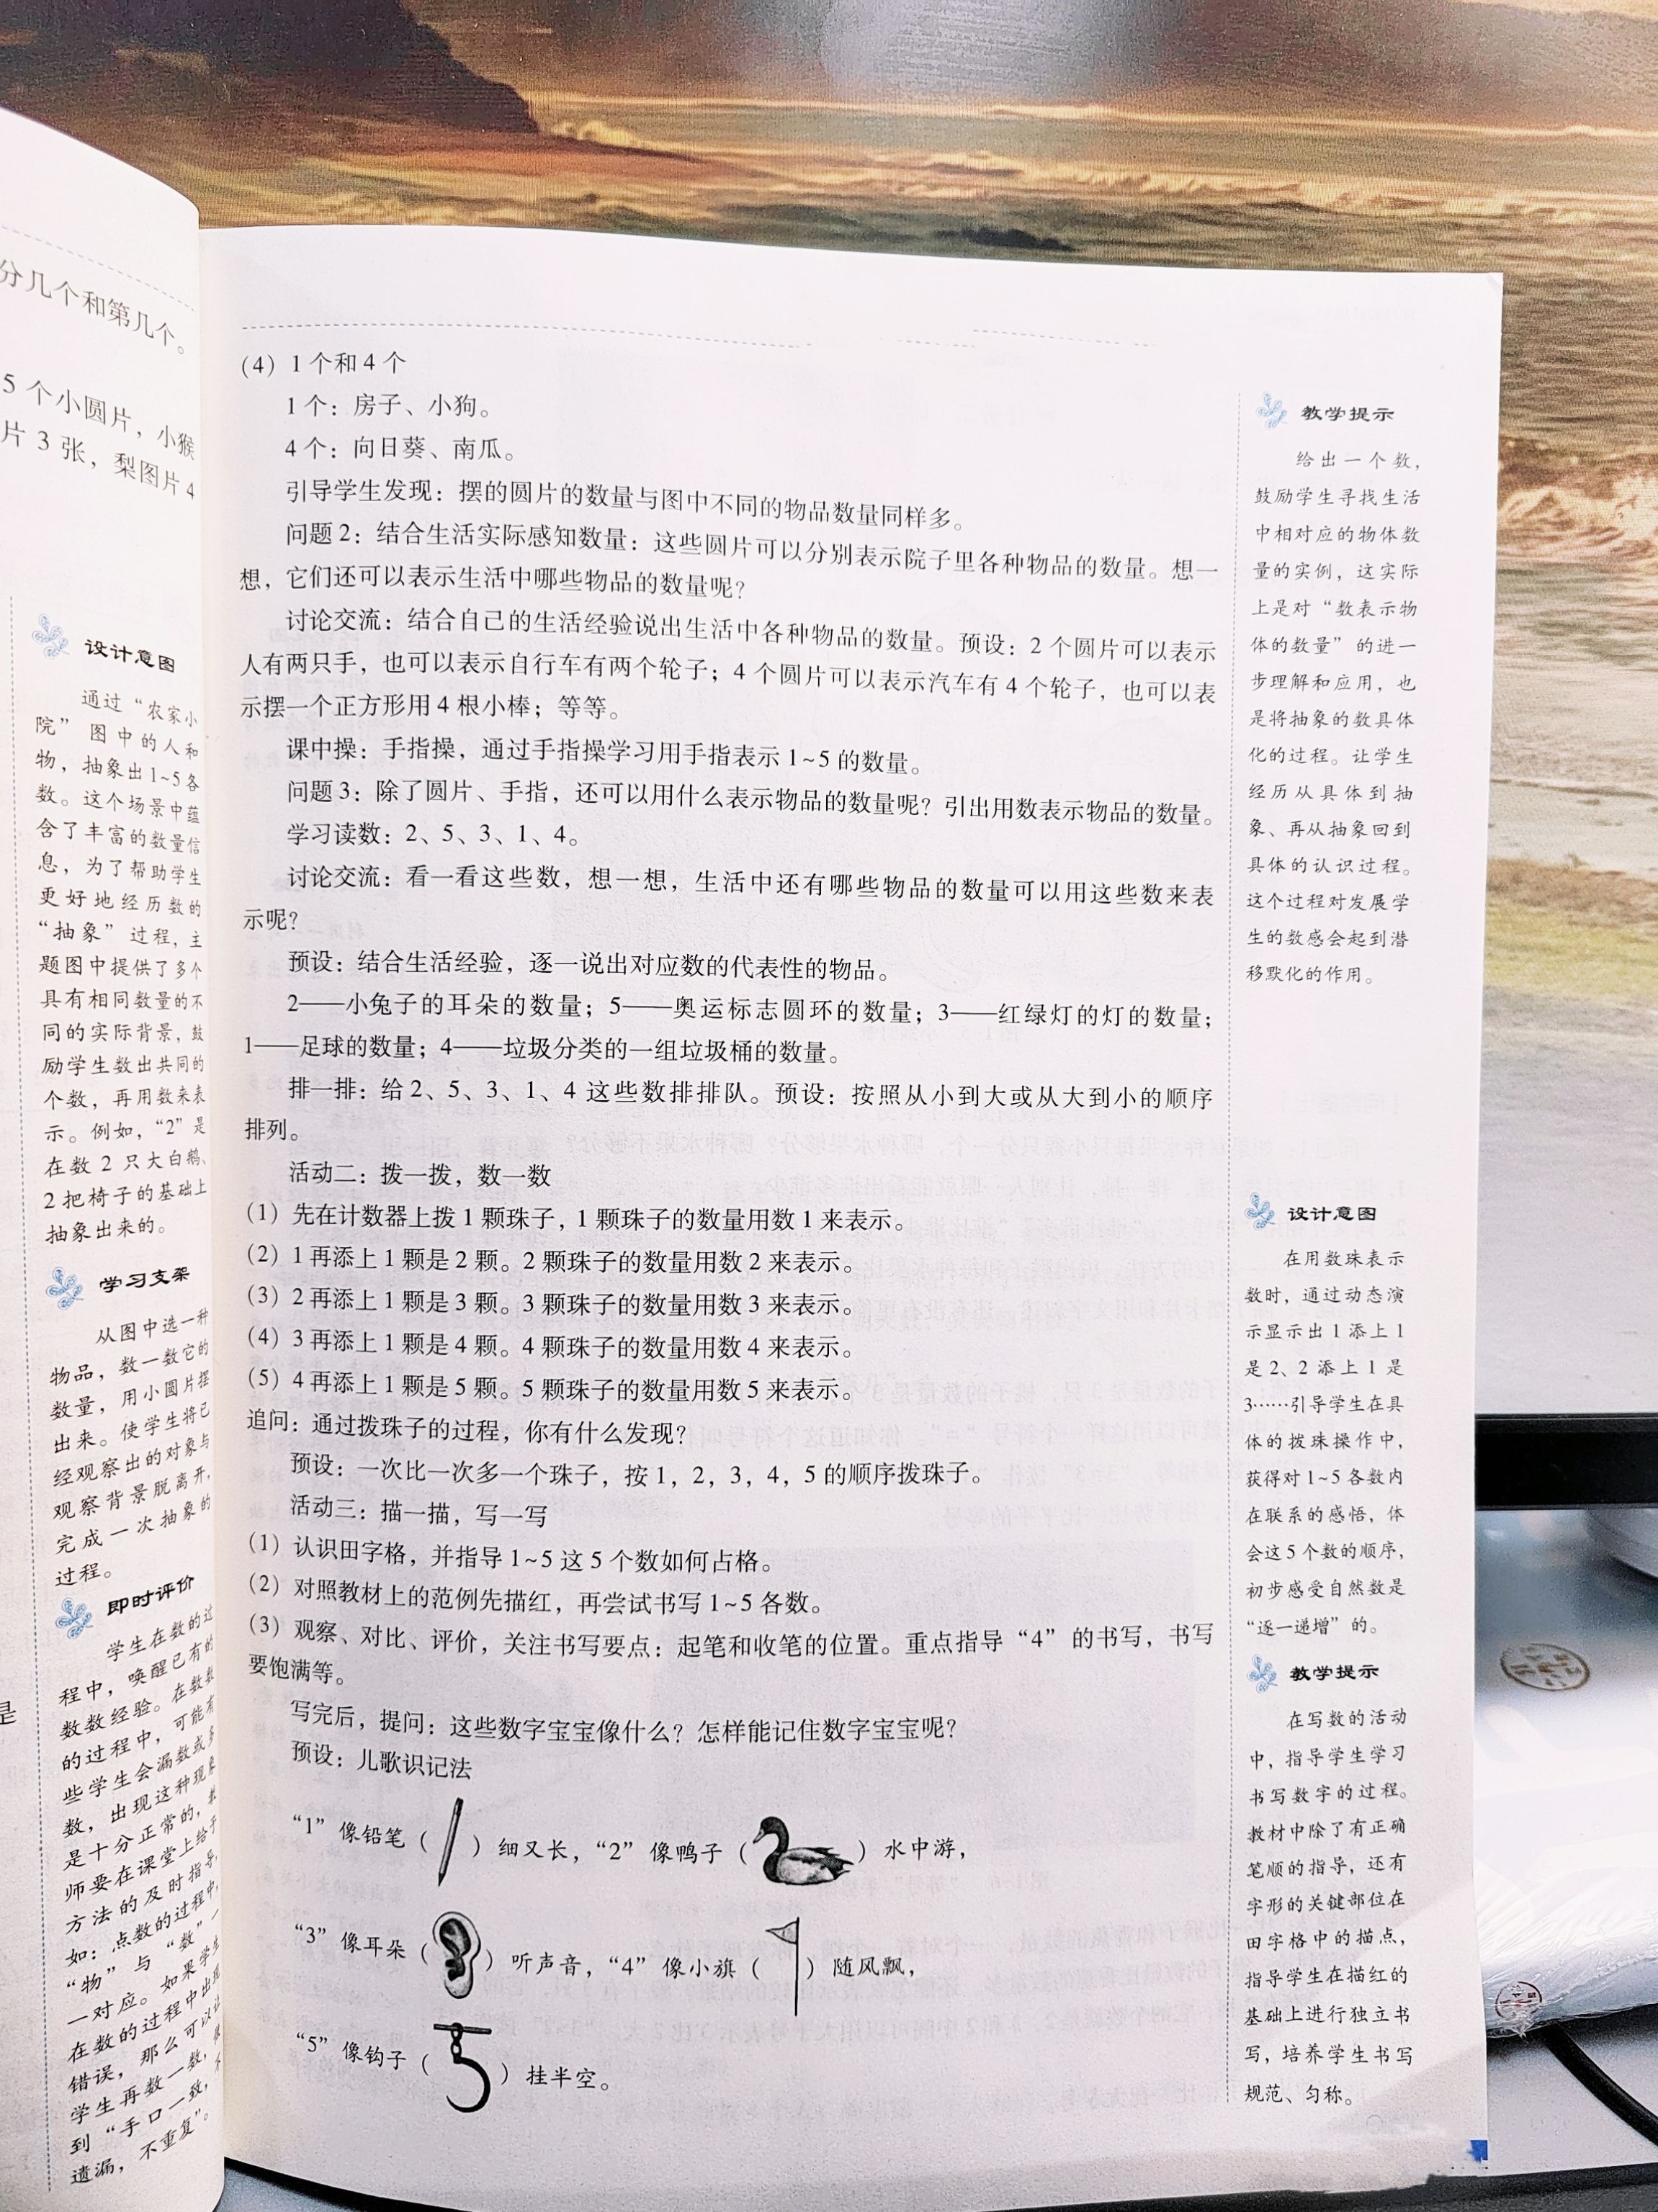 分几个和第几个。
5 个小圆片，小猴
片 3 张，梨图片 4
设计意图
通过“农家小
院”图中的人和
物，抽象出1~5各
数。这个场景中蕴
含了丰富的数量信
息，为了帮助学生
更好地经历数的
“抽象”过程，主
题图中提供了多个
具有相同数量的不
同的实际背景，鼓
励学生数出共同的
个数，再用数来表
示。例如，“2”是
在数 2 只大白鹅、
2 把椅子的基础上
抽象出来的。
学习支架
从图中选一种
物品，数一数它的
数量，用小圆片摆
出来。使学生将已
经观察出的对象与
观察背景脱离开，
完成一次抽象的
过程。
即时评价
学生在数的过
程中，唤醒已有的
数数经验。在数数
的过程中，可能有
些学生会漏数或多
数，出现这种现象
是十分正常的，教
师要在课堂上给予
方法的及时指导，
如：点数的过程中，
“物”与“数”一
一对应。如果学生
在数的过程中出现
错误，那么可以让
学生再数一数，
到“手口一致，不
遗漏，不重复”。
是
（4）1 个和 4 个
1 个：房子、小狗。
4 个：向日葵、南瓜。
引导学生发现：摆的圆片的数量与图中不同的物品数量同样多。
问题 2：结合生活实际感知数量：这些圆片可以分别表示院子里各种物品的数量。想一
想，它们还可以表示生活中哪些物品的数量呢？
讨论交流：结合自己的生活经验说出生活中各种物品的数量。预设：2 个圆片可以表示
人有两只手，也可以表示自行车有两个轮子；4 个圆片可以表示汽车有 4 个轮子，也可以表
示摆一个正方形用 4 根小棒；等等。
课中操：手指操，通过手指操学习用手指表示 1~5 的数量。
问题 3：除了圆片、手指，还可以用什么表示物品的数量呢？引出用数表示物品的数量。
学习读数：2、5、3、1、4。
讨论交流：看一看这些数，想一想，生活中还有哪些物品的数量可以用这些数来表
示呢？
预设：结合生活经验，逐一说出对应数的代表性的物品。
2——小兔子的耳朵的数量；5——奥运标志圆环的数量；3——红绿灯的灯的数量；
1——足球的数量；4——垃圾分类的一组垃圾桶的数量。
排一排：给 2、5、3、1、4 这些数排排队。预设：按照从小到大或从大到小的顺序
排列。
活动二：拨一拨，数一数
（1）先在计数器上拨 1 颗珠子，1 颗珠子的数量用数 1 来表示。
（2）1 再添上 1 颗是 2 颗。2 颗珠子的数量用数 2 来表示。
（3）2 再添上 1 颗是 3 颗。3 颗珠子的数量用数 3 来表示。
（4）3 再添上 1 颗是 4 颗。4 颗珠子的数量用数 4 来表示。
（5）4 再添上 1 颗是 5 颗。5 颗珠子的数量用数 5 来表示。
追问：通过拨珠子的过程，你有什么发现？
预设：一次比一次多一个珠子，按 1，2，3，4，5 的顺序拨珠子。
活动三：描一描，写一写
（1）认识田字格，并指导 1~5 这 5 个数如何占格。
（2）对照教材上的范例先描红，再尝试书写 1~5 各数。
（3）观察、对比、评价，关注书写要点：起笔和收笔的位置。重点指导“4”的书写，书写
要饱满等。
写完后，提问：这些数字宝宝像什么？怎样能记住数字宝宝呢？
预设：儿歌识记法
“1”像铅笔（ ）细又长，“2”像鸭子（ ）水中游，
“3”像耳朵（ ）听声音，“4”像小旗（ ）随风飘，
“5”像钩子（ ）挂半空。
教学提示
给出一个数，
鼓励学生寻找生活
中相对应的物体数
量的实例，这实际
上是对“数表示物
体的数量”的进一
步理解和应用，也
是将抽象的数具体
化的过程。让学生
经历从具体到抽
象、再从抽象回到
具体的认识过程。
这个过程对发展学
生的数感会起到潜
移默化的作用。
设计意图
在用数珠表示
数时，通过动态演
示显示出 1 添上 1
是 2、2 添上 1 是
3……引导学生在具
体的拨珠操作中，
获得对 1~5 各数内
在联系的感悟，体
会这 5 个数的顺序，
初步感受自然数是
“逐一递增”的。
教学提示
在写数的活动
中，指导学生学习
书写数字的过程。
教材中除了有正确
笔顺的指导，还有
字形的关键部位在
田字格中的描点，
指导学生在描红的
基础上进行独立书
写，培养学生书写
规范、匀称。